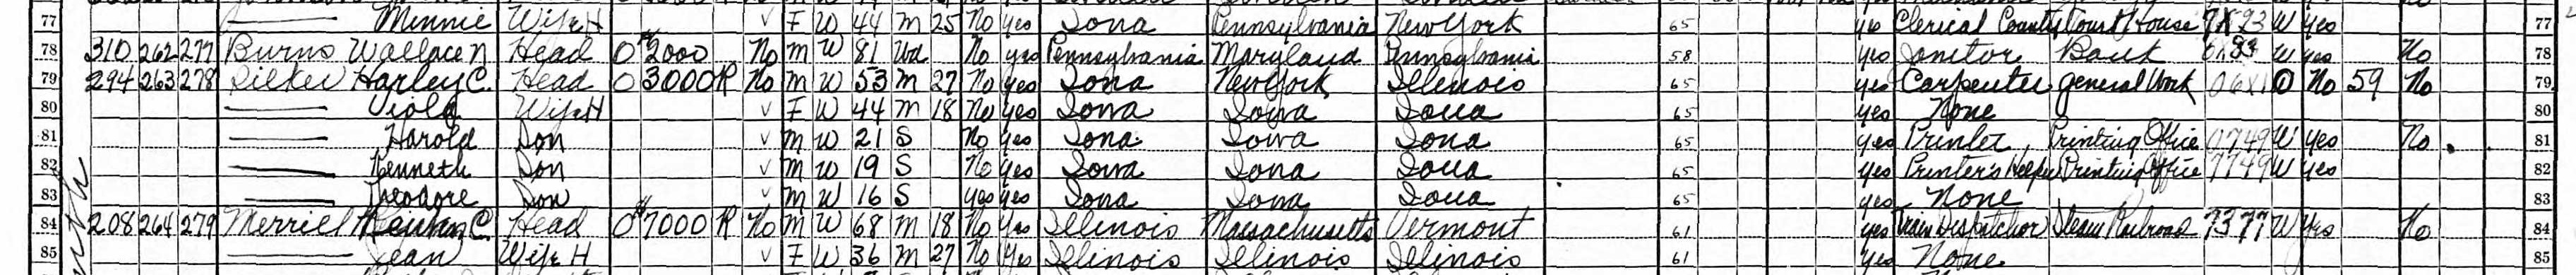 77 Minnie Wife H V F W 44 M 25 No yes Iowa Pennsylvania New York 65 yes Clerical County Court House 7X93 W yes 77
78 310 262 277 Burns Wallace N Head O 2000 No M W 81 Wd No yes Pennsylvania Maryland Pennsylvania 58 yes Janitor Bank W yes No 78
79 294 263 278 Harley C. Head O 3000 R No M W 53 M 27 No yes Iowa New York Illinois 65 yes Carpenter general Work O No 59 No 79
80 Viola Wife H V F W 44 M 18 No yes Iowa Iowa Iowa 65 yes None 80
81 Harold Son V M W 21 S No yes Iowa Iowa Iowa 65 yes Printer Printing Office 0749 W yes No 81
82 Kenneth Son V M W 19 S No yes Iowa Iowa Iowa 65 yes Printer's Helper Printing Office 7749 W yes 82
83 Teodore Son V M W 16 S yes yes Iowa Iowa Iowa 65 yes None 83
84 208 264 279 Merriel C. Head O 7000 R No M W 68 M 18 No yes Illinois Massachusetts Vermont 61 yes Train Dispatcher Steam Railroad 7377 W yes No 84
85 Jean Wife H V F W 36 M 27 No yes Illinois Illinois Illinois 61 yes None 85